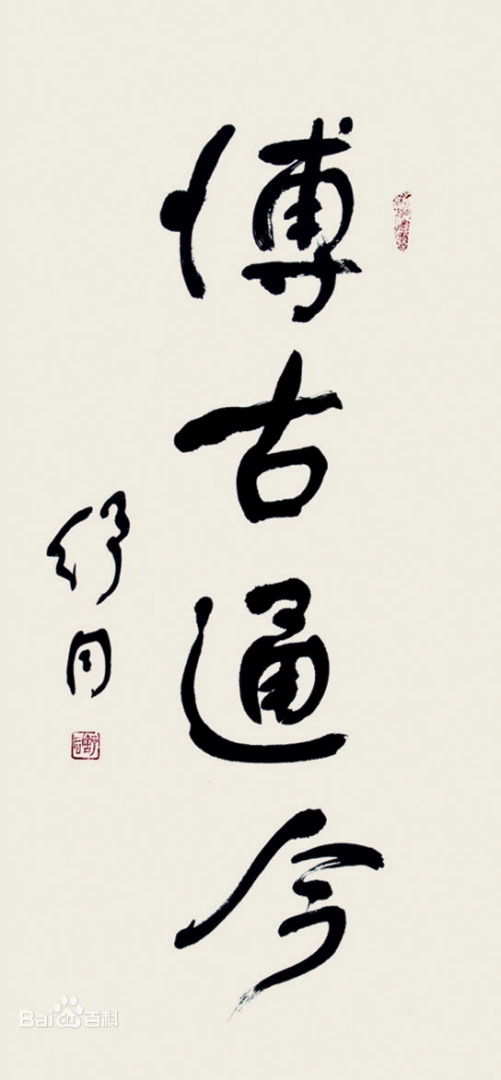 博古通今
舒同
Bai百科